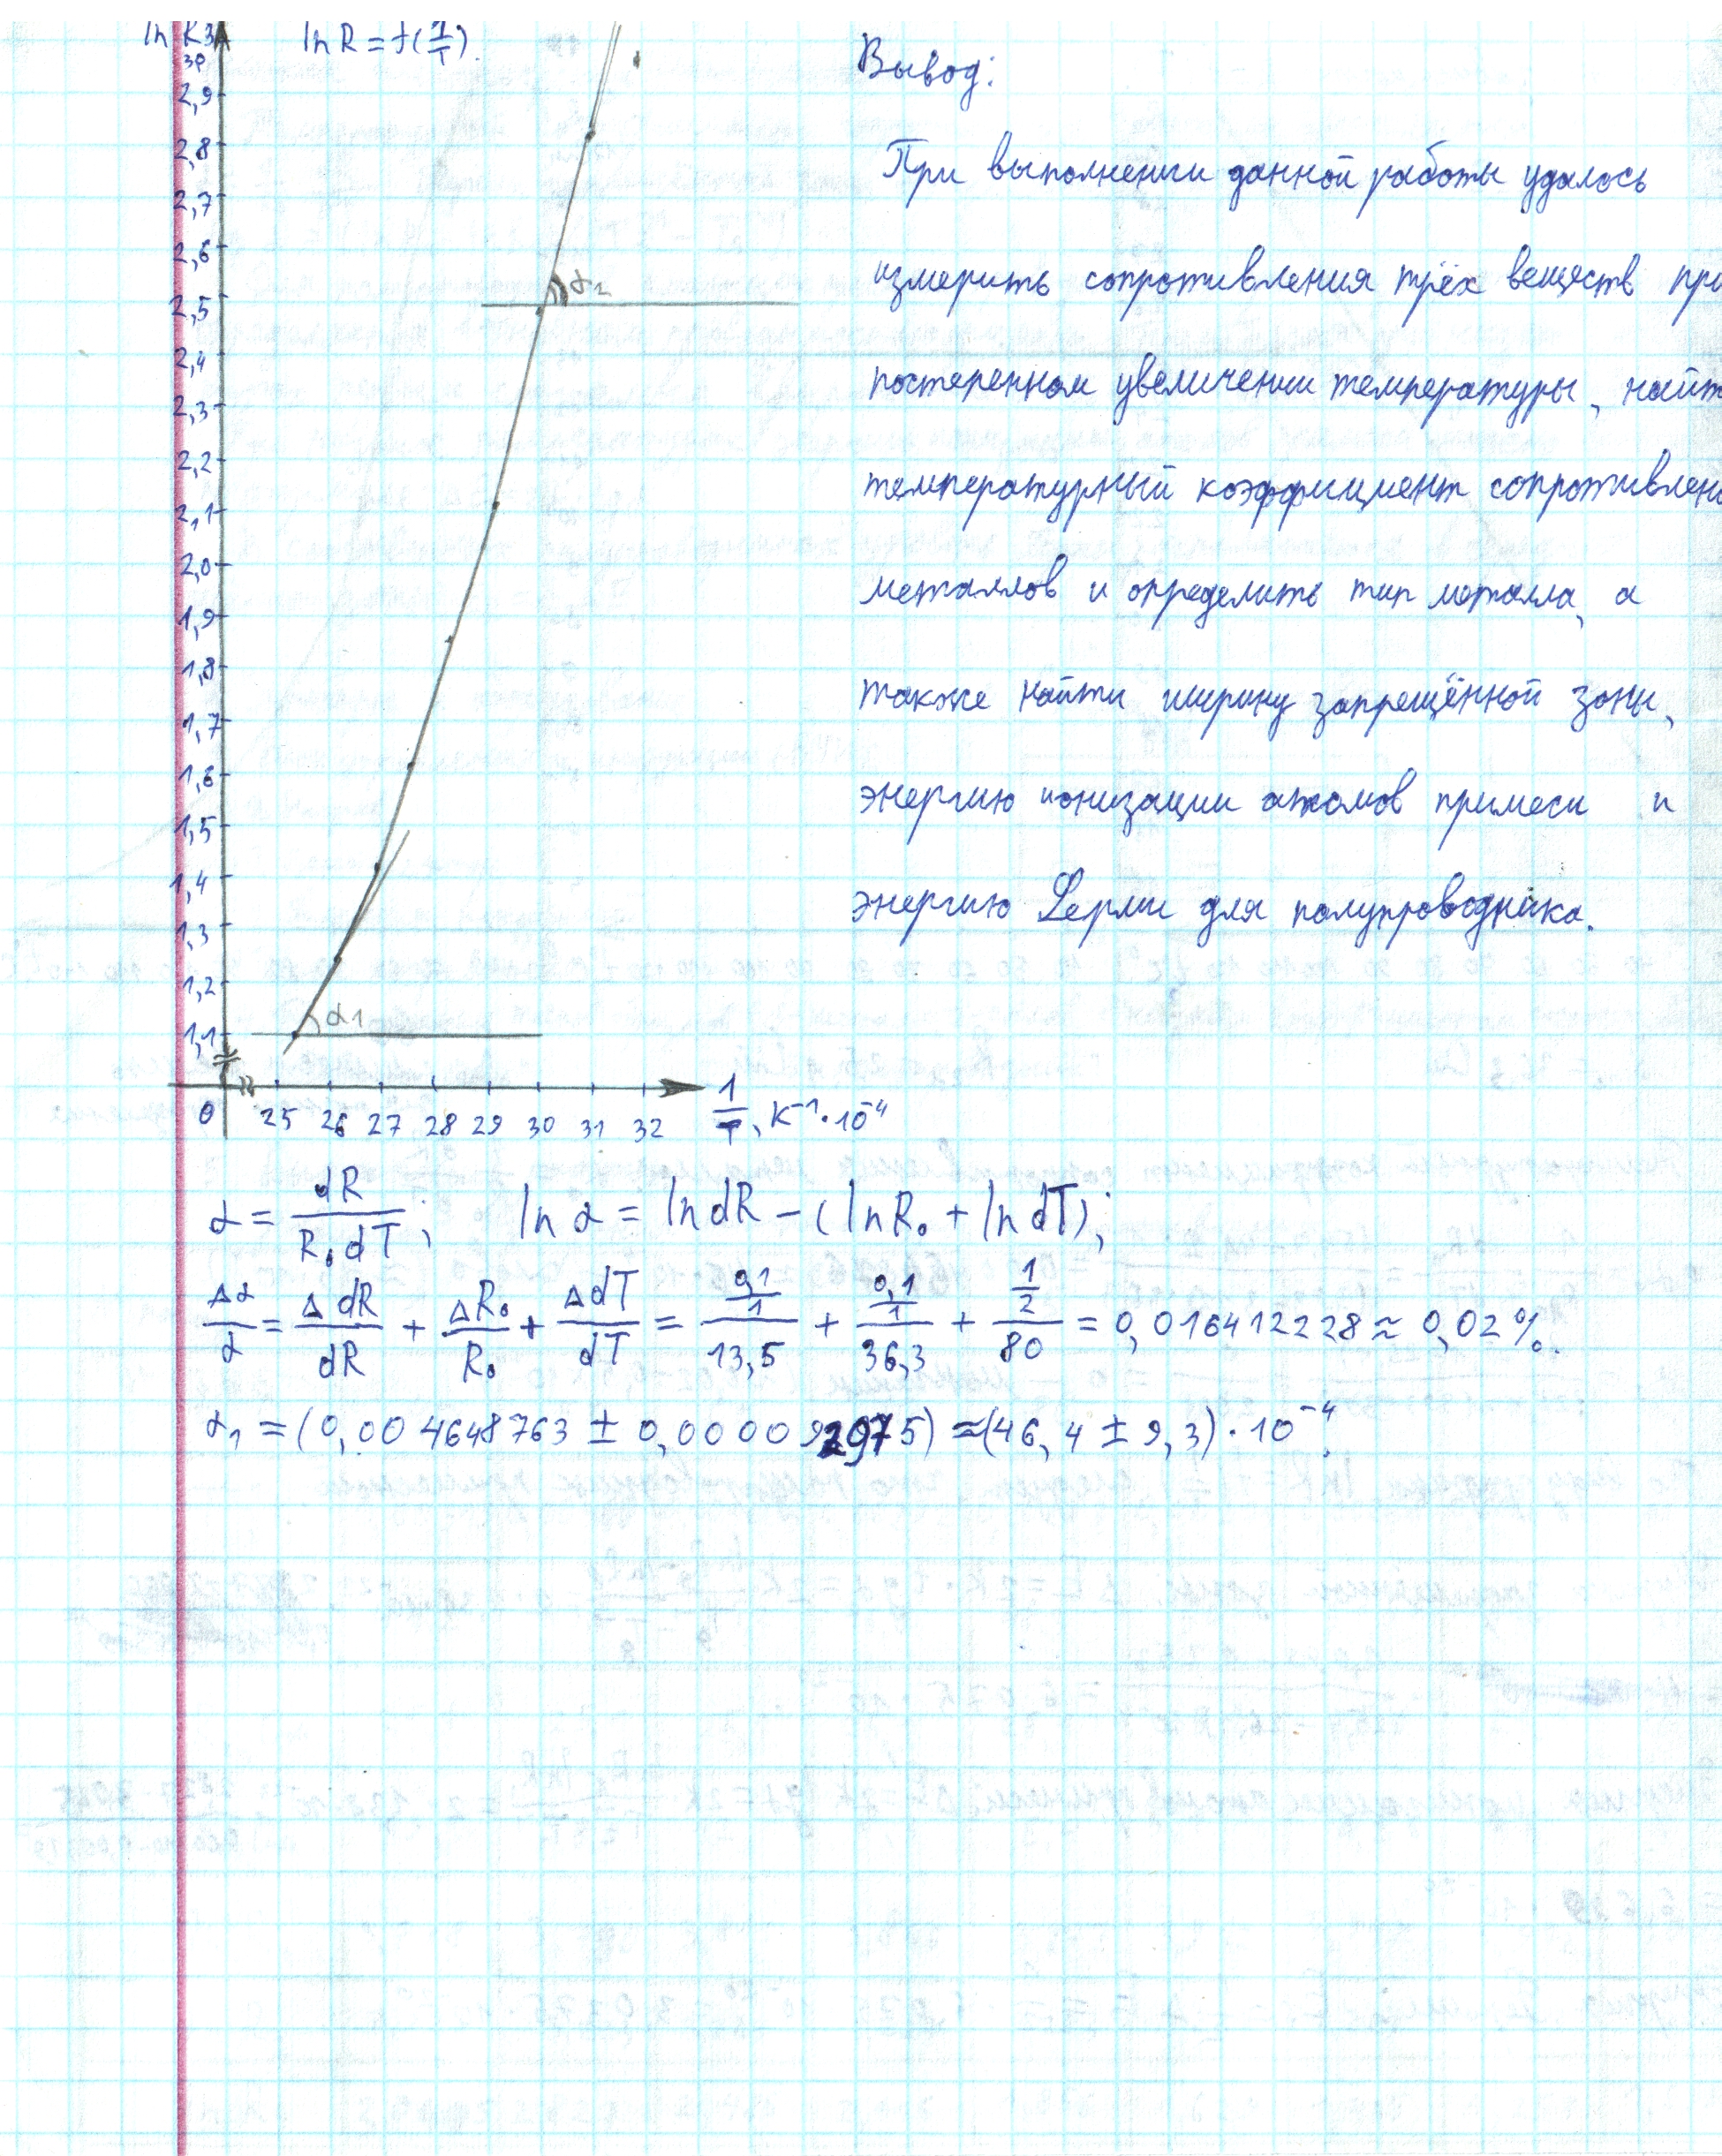 ln R
ln R = f(1/T)
3,0
2,9
2,8
2,7
2,6
2,5
2,4
2,3
2,2
2,1
2,0
1,9
1,8
1,7
1,6
1,5
1,4
1,3
1,2
1,1
α2
α1
0 25 26 27 28 29 30 31 32 1/T, K⁻¹·10⁻⁴
Вывод:
При выполнении данной работы удалось
измерить сопротивления трёх веществ при
постеренном увеличении температуры, найт
температурный коэффициент сопротивлен
металлов и определить тип металла, а
также найти ширину запрещённой зоны,
энергию ионизации атомов примеси и
энергию Ферми для полупроводника.
α = dR/(R₀dT); ln α = ln dR − (ln R₀ + ln dT);
Δα/α = ΔdR/dR + ΔR₀/R₀ + ΔdT/dT = (0,1/1)/13,5 + (0,1/1)/36,3 + (1/2)/80 = 0,016412228 ≈ 0,02%.
α₁ = (0,004648763 ± 0,000092975) ≈ (46,4 ± 9,3)·10⁻⁴.